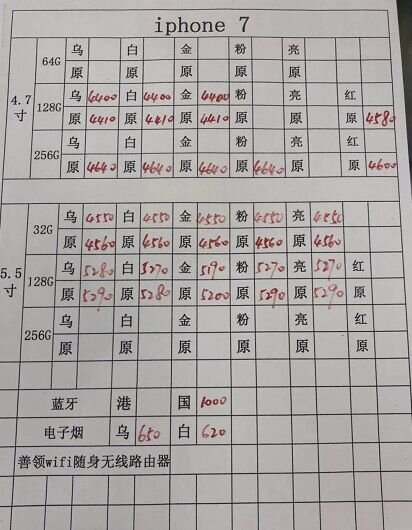 iphone 7
4.7寸 64G 乌 白 金 粉 亮
原 原 原 原 原
128G 乌 4400 白 4400 金 4400 粉 亮 红
原 4410 原 4410 原 4410 原 原 原 4580
256G 乌 白 金 粉 亮 红
原 4640 原 4640 原 4640 原 4640 原 原 4600
5.5寸 32G 乌 4550 白 4550 金 4550 粉 4550 亮 4550
原 4560 原 4560 原 4560 原 4560 原 4560
128G 乌 5280 白 5270 金 5190 粉 5270 亮 5270 红
原 5290 原 5280 原 5200 原 5290 原 5290 原
256G 乌 白 金 粉 亮 红
原 原 原 原 原 原
蓝牙 港 国 1000
电子烟 乌 650 白 620
善领wifi随身无线路由器